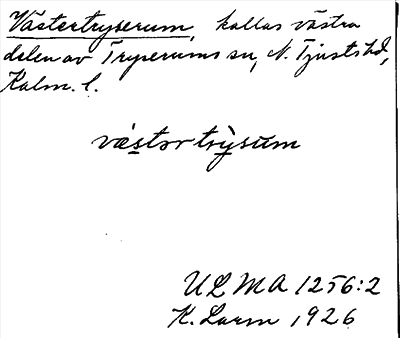 Västertryserum, kallas västra
delen av Tryserums sn, N. Tjusts hd,
Kalm. l.
västər trỳsum
ULMA 1256:2
K. Larm 1926